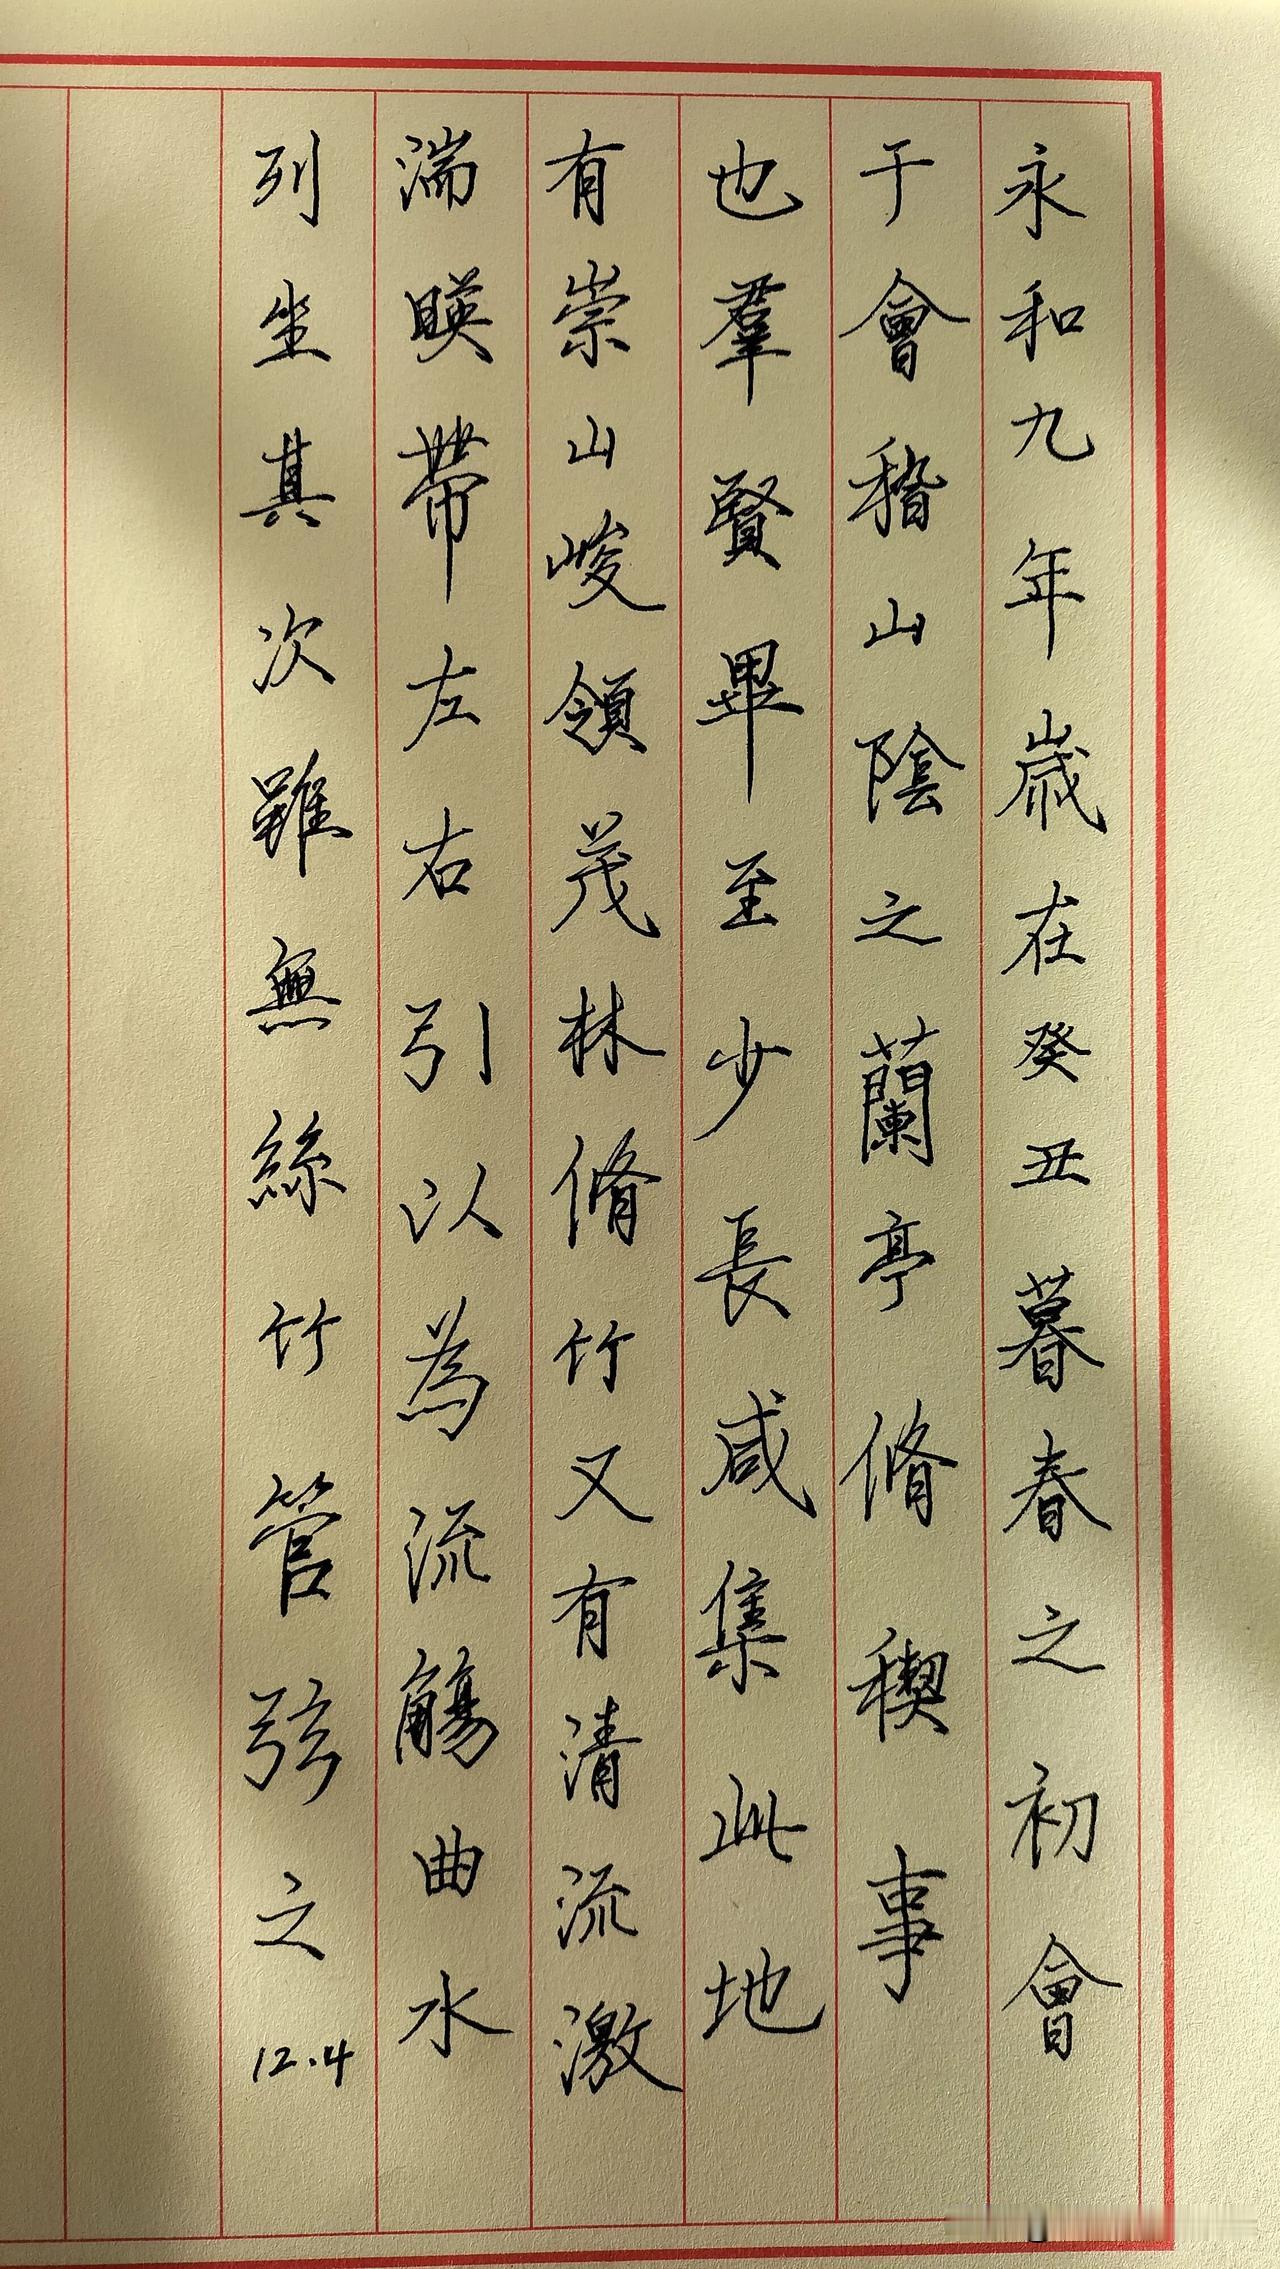 永和九年歲在癸丑暮春之初會
于會稽山陰之蘭亭脩稧事
也羣賢畢至少長咸集此地
有崇山峻領茂林脩竹又有清流激
湍暎帶左右引以為流觴曲水
列坐其次雖無絲竹管弦之
12.4